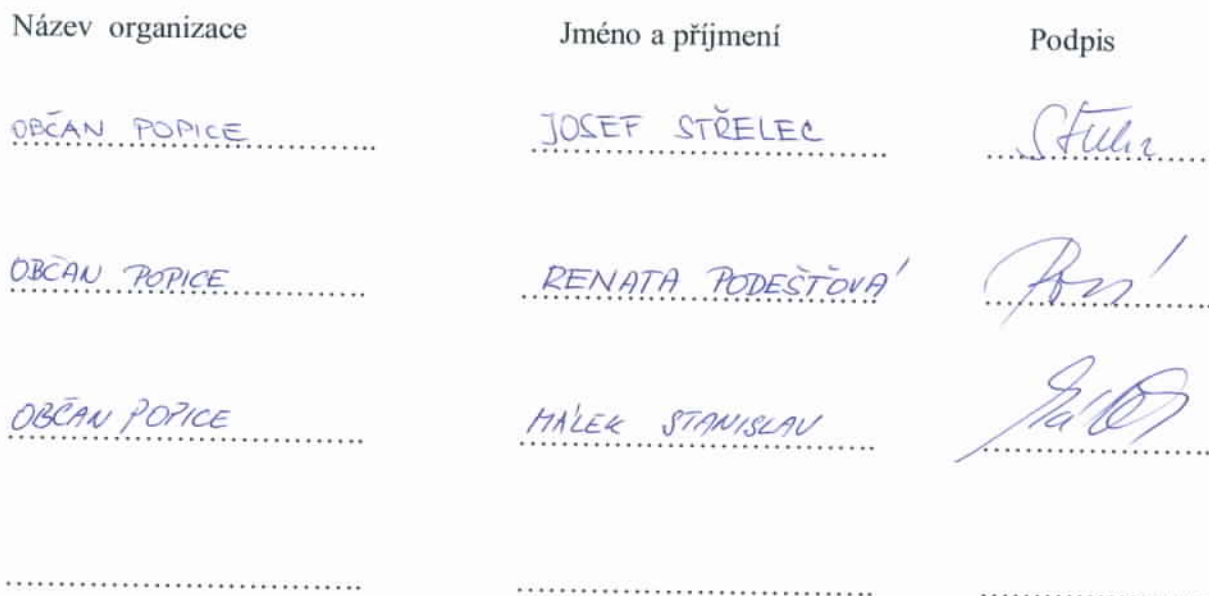 Název organizace Jméno a příjmení Podpis
OBČAN POPICE JOSEF STŘELEC
OBČAN POPICE RENATA PODEŠŤOVÁ
OBČAN POPICE MÁLEK STANISLAV